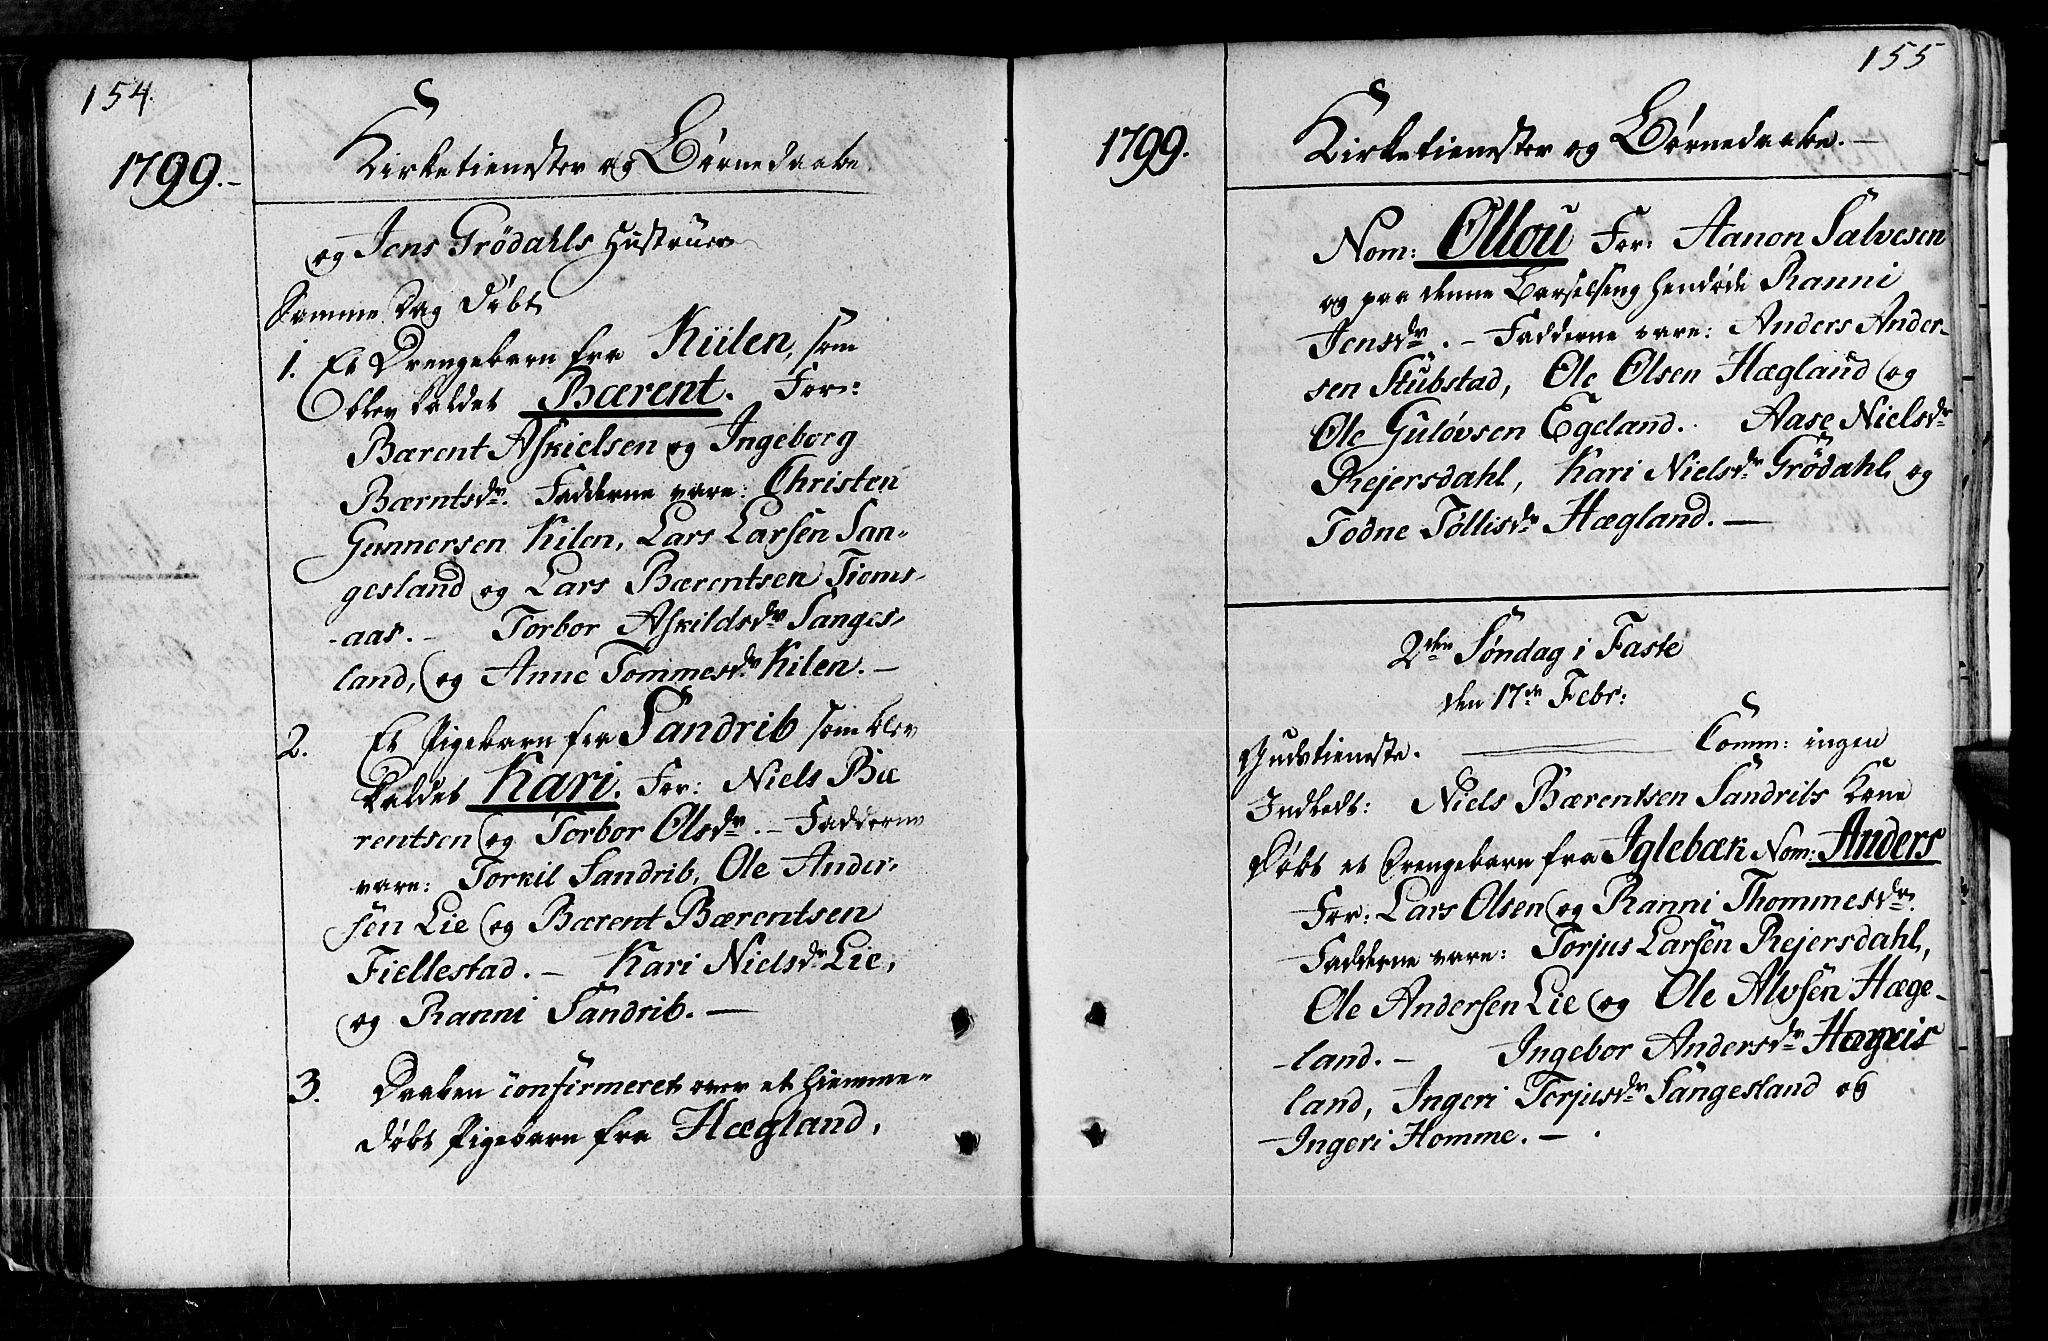 154.
1799.-
Kirketienester og Børnedaabe.
og Jens Grödahls Hustruer
Samme Dag Döbt
1. Et Drengebarn fra Kiilen, som
blev kaldet Bærent. For:
Bærent Askielsen og Ingeborg
Bærntsdr. Fadderne vare: Christen
Gunnersen Kilen, Lars Larsen San-
gesland og Lars Bærentsen Tioms-
-aas. - Torbor Askildsdr Sanges-
land, og Anne Tommesdr Kilen. -
2. Et Pigebarn fra Sandrib som blev
kaldet Kari. For: Niels Bæ
rentsen og Torbor Olsdr. - Fadderne
vare: Torkil Sandrib, Ole Ander-
sen Lie og Bærent Bærentsen
Fiellestad. - Kari Nielsdr Lie,
og Ranni Sandrib. -
3. Daaben confirmeret over et hiemme-
døbt Pigebarn fra Hægland,
155
1799.
Kirketienester og Børnedaabe. -
Nom: Ollou For: Aanon Salvesen
og paa denne Barselseng hendøde Ranni
Jensdr. - Fadderne vare: Anders Ander-
sen Stubstad, Ole Olsen Hægland og
Ole Guløvsen Egeland. Aase Nielsdr
Rejersdahl, Kari Nielsdr Grödahl og
Todne Tøllisdr Hægland. -
2den Søndag i Faste
den 17de Febr:
Gudstieneste. Comm: ingen
Indledt: Niels Bærentsen Sandribs Kone
Døbt et Drengebarn fra Iglebæk Nom: Anders
For: Lars Olsen og Ranni Thommesdr.
Fadderne vare: Torjus Larsen Rejersdahl,
Ole Andersen Lie og Ole Alvsen Hæge-
-land. - Ingebor Andersdr
land, Ingeri Torjusdr Sangesland og
Ingeri Homme. - .